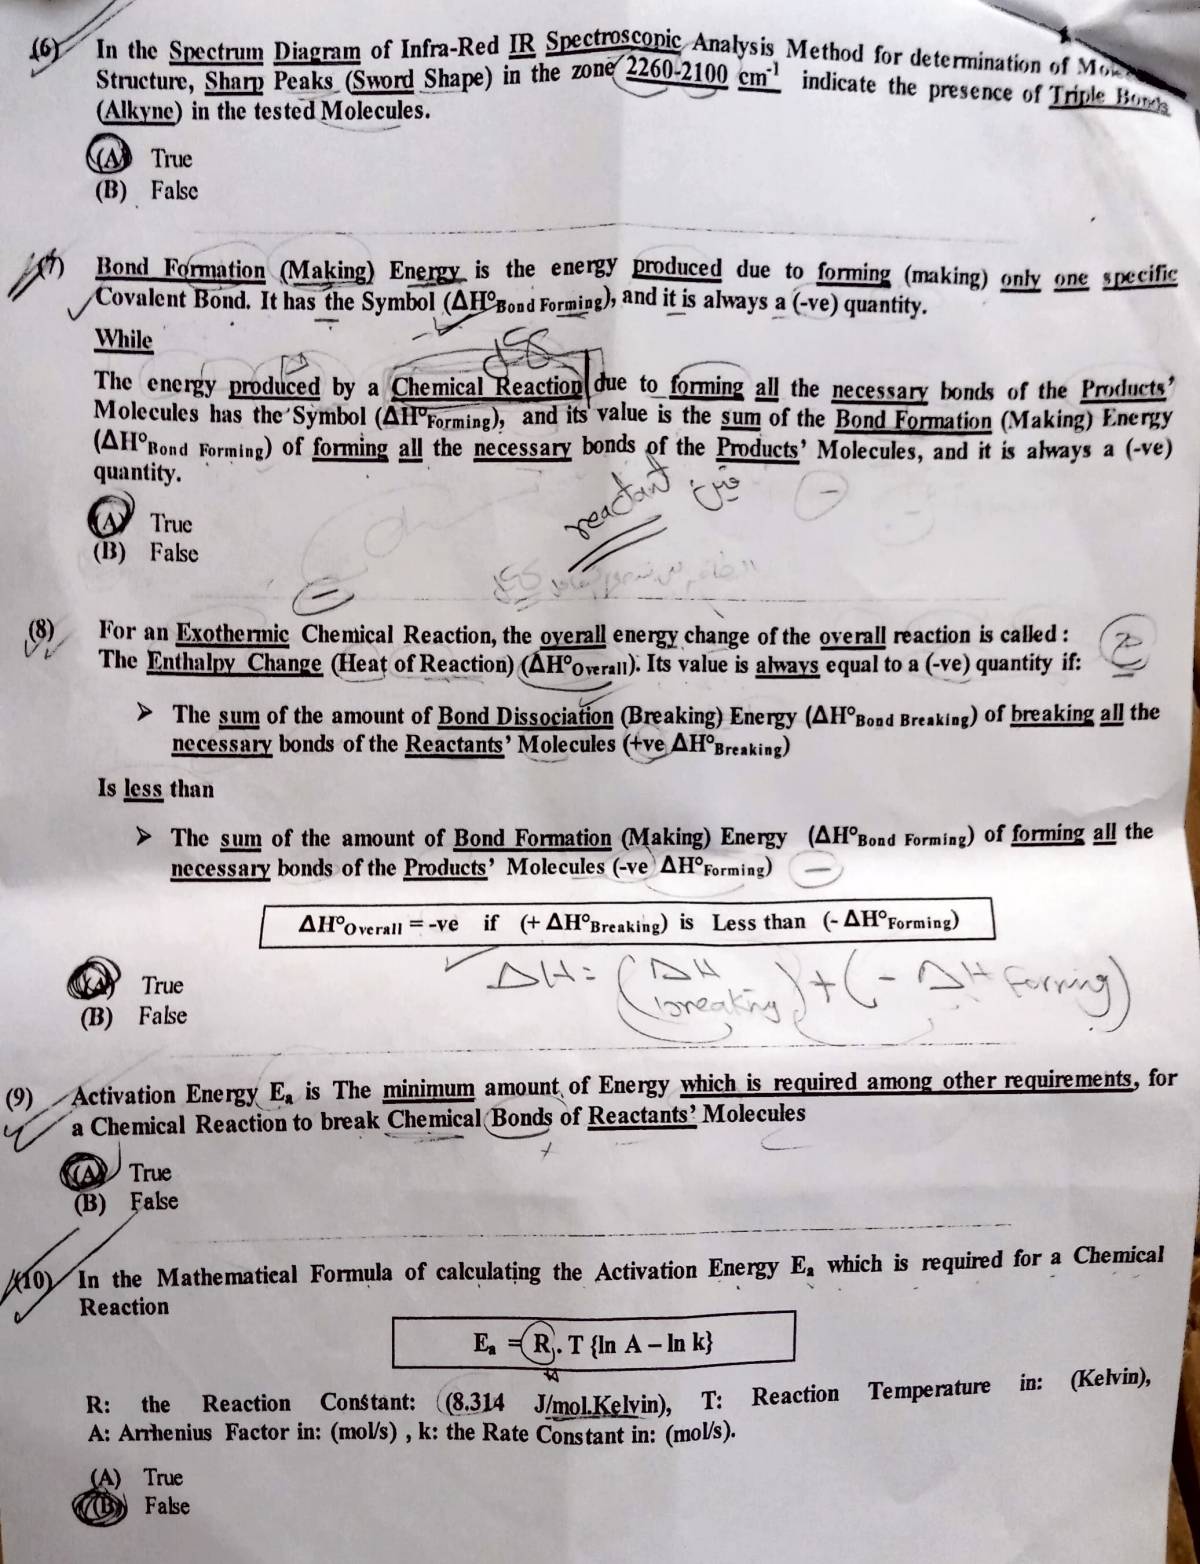 (6) In the Spectrum Diagram of Infra-Red IR Spectroscopic Analysis Method for determination of
Structure, Sharp Peaks (Sword Shape) in the zone 2260-2100 cm⁻¹ indicate the presence of Triple Bonds
(Alkyne) in the tested Molecules.
(A) True
(B) False
(7) Bond Formation (Making) Energy is the energy produced due to forming (making) only one specific
Covalent Bond. It has the Symbol (ΔH°Bond Forming), and it is always a (-ve) quantity.
While
The energy produced by a Chemical Reaction due to forming all the necessary bonds of the Products'
Molecules has the Symbol (ΔH°Forming), and its value is the sum of the Bond Formation (Making) Energy
(ΔH°Bond Forming) of forming all the necessary bonds of the Products' Molecules, and it is always a (-ve)
quantity.
reactant فين
(A) True
(B) False
(8) For an Exothermic Chemical Reaction, the overall energy change of the overall reaction is called :
The Enthalpy Change (Heat of Reaction) (ΔH°Overall). Its value is always equal to a (-ve) quantity if:
➢ The sum of the amount of Bond Dissociation (Breaking) Energy (ΔH°Bond Breaking) of breaking all the
necessary bonds of the Reactants' Molecules (+ve ΔH°Breaking)
Is less than
➢ The sum of the amount of Bond Formation (Making) Energy (ΔH°Bond Forming) of forming all the
necessary bonds of the Products' Molecules (-ve ΔH°Forming)
ΔH°Overall = -ve if (+ ΔH°Breaking) is Less than (- ΔH°Forming)
ΔH = (ΔH breaking) + (- ΔH Forming)
(A) True
(B) False
(9) Activation Energy Ea is The minimum amount of Energy which is required among other requirements, for
a Chemical Reaction to break Chemical Bonds of Reactants' Molecules
(A) True
(B) False
(10) In the Mathematical Formula of calculating the Activation Energy Ea which is required for a Chemical
Reaction
Ea = R . T {ln A – ln k}
R: the Reaction Constant: (8.314 J/mol.Kelvin), T: Reaction Temperature in: (Kelvin),
A: Arrhenius Factor in: (mol/s) , k: the Rate Constant in: (mol/s).
(A) True
(B) False